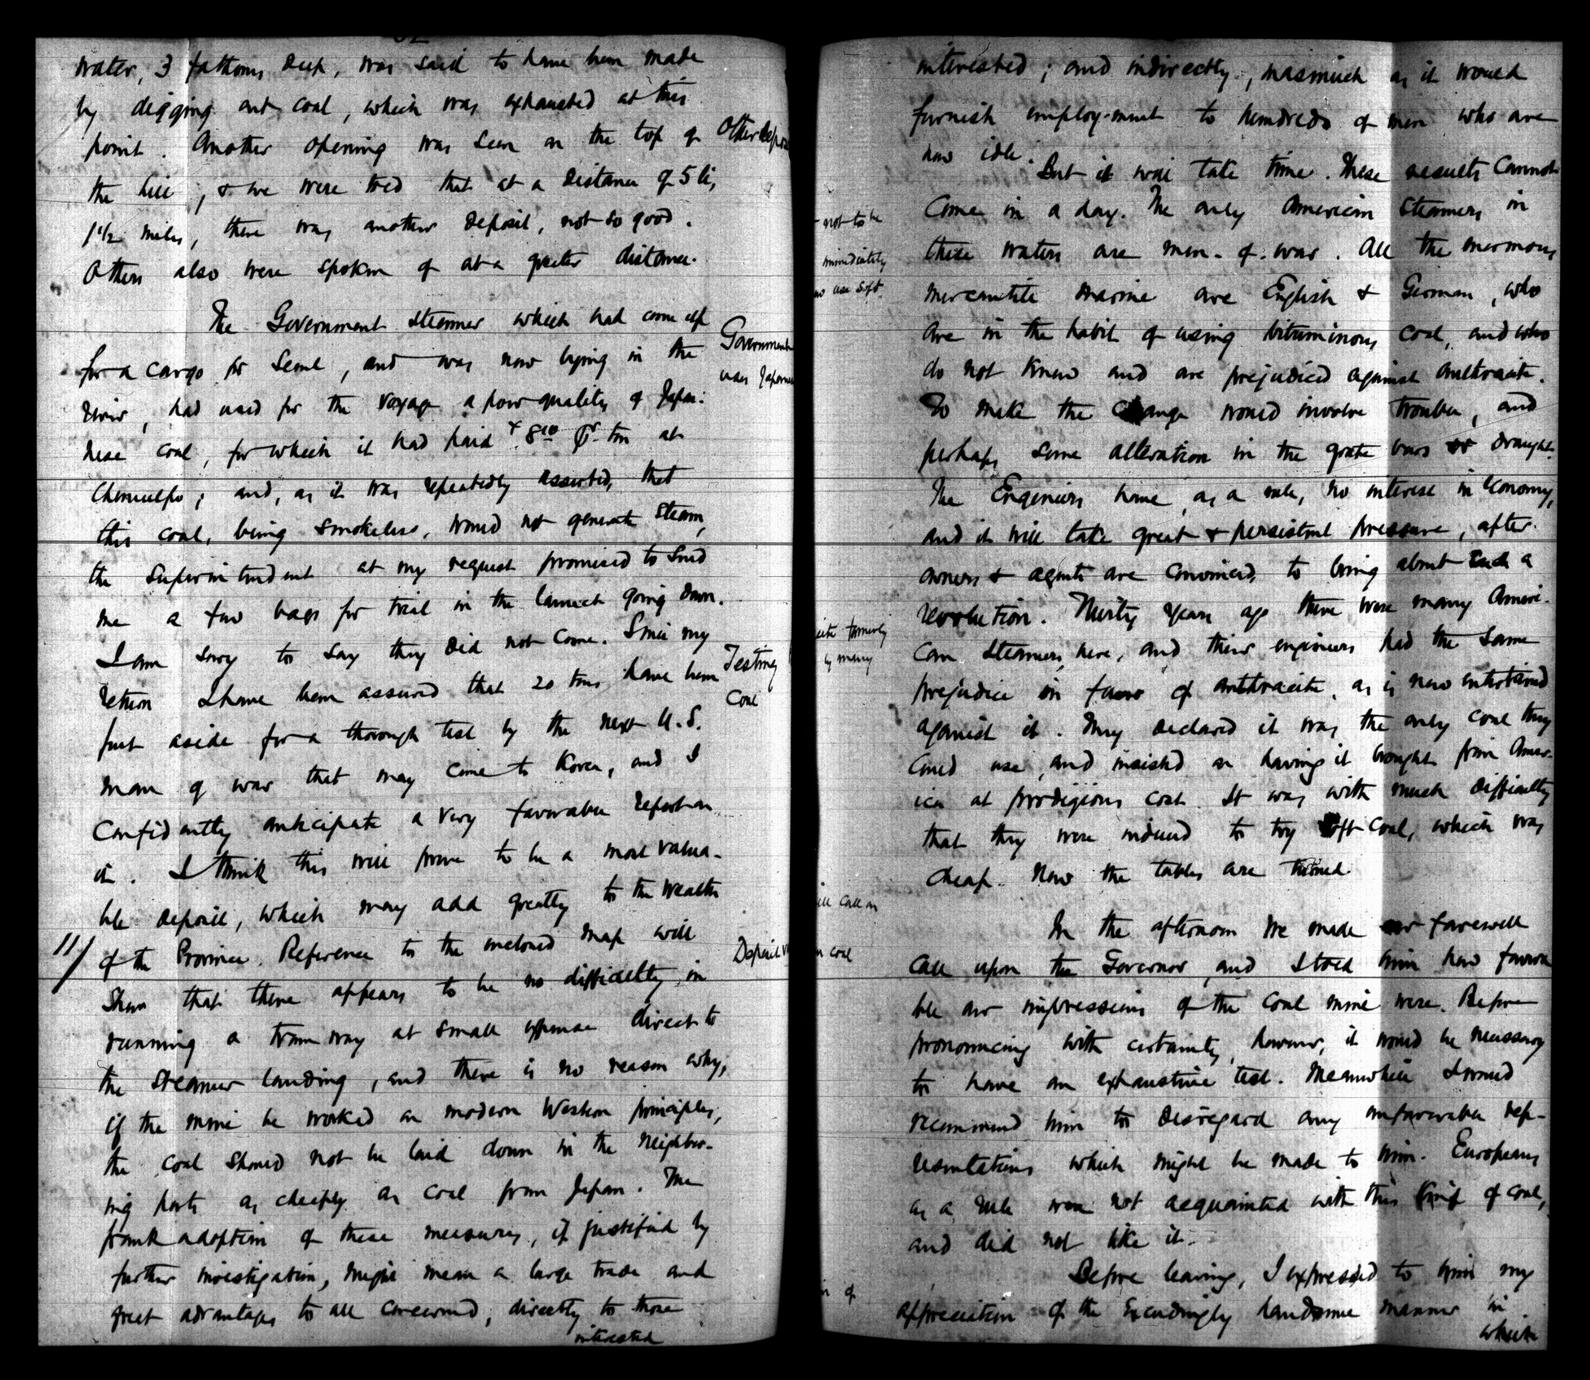 water, 3 fathoms deep, was said to have been made
by digging out coal, which was exhausted at this
point. Another opening was seen on the top of
the hill; & we were told that at a distance of 5 li,
1 1/2 miles, there was another deposit, not so good.
Others also were spoken of at a greater distance.
The Government steamer which had come up
for a cargo for Seoul, and was now lying in the
river, had used for the voyage a poor quality of Japa-
nese coal, for which it had paid $8 pr. ton at
Chemulpo; and, as it was repeatedly asserted, that
this coal, being smokeless, would not generate steam,
the Superintendent at my request promised to send
me a few bags for trial in the launch going down.
I am sorry to say they did not come. Since my
return I have been assured that 20 tons have been
put aside for a thorough test by the next U.S.
man of war that may come to Korea, and I
confidently anticipate a very favorable report on
it. I think this will prove to be a most valua-
ble deposit, which may add greatly to the wealth
11/ of the Province. Reference to the enclosed map will
show that there appears to be no difficulty in
running a tramway at small expense direct to
the steamer landing, and there is no reason why,
if the mine be worked on modern Western principles,
the coal should not be laid down in the neighbor-
ing ports as cheaply as coal from Japan. The
frank adoption of these measures, if justified by
further investigation, might mean a large trade and
great advantages to all concerned; directly to those
interested
Government
uses
Testing
Coal
interested; and indirectly, inasmuch as it would
furnish employ-ment to hundreds of men who are
now idle.
But it will take time. These results cannot
come in a day. The only American steamers in
these waters are men-of-war. All the enormous
mercantile marine are English & German, who
are in the habit of using bituminous coal, and who
do not know and are prejudiced against anthracite.
To make the change would involve trouble, and
perhaps some alteration in the grate bars or draught.
The Engineers have, as a rule, no interest in economy,
and it will take great & persistent pressure, after
owners & agents are convinced, to bring about such a
revolution. Thirty years ago there were many Ameri-
can steamers here, and their engineers had the same
prejudice in favor of anthracite, as is now entertained
against it. They declared it was the only coal they
could use, and insisted on having it brought from Amer-
ica at prodigious cost. It was with much difficulty
that they were induced to try soft coal, which was
cheap. Now the tables are turned.
In the afternoon we made our farewell
call upon the Governor, and I told him how favora-
ble our impressions of the coal mine were. Before
pronouncing with certainty, however, it would be necessary
to have an exhaustive test. Meanwhile I would
recommend him to disregard any unfavorable rep-
resentations which might be made to him. Europeans
as a rule were not acquainted with this kind of coal,
and did not like it.
Before leaving, I expressed to him my
appreciation of the exceedingly handsome manner in
which
not to be
immediately
use soft
formerly
by many
call on
coal
of